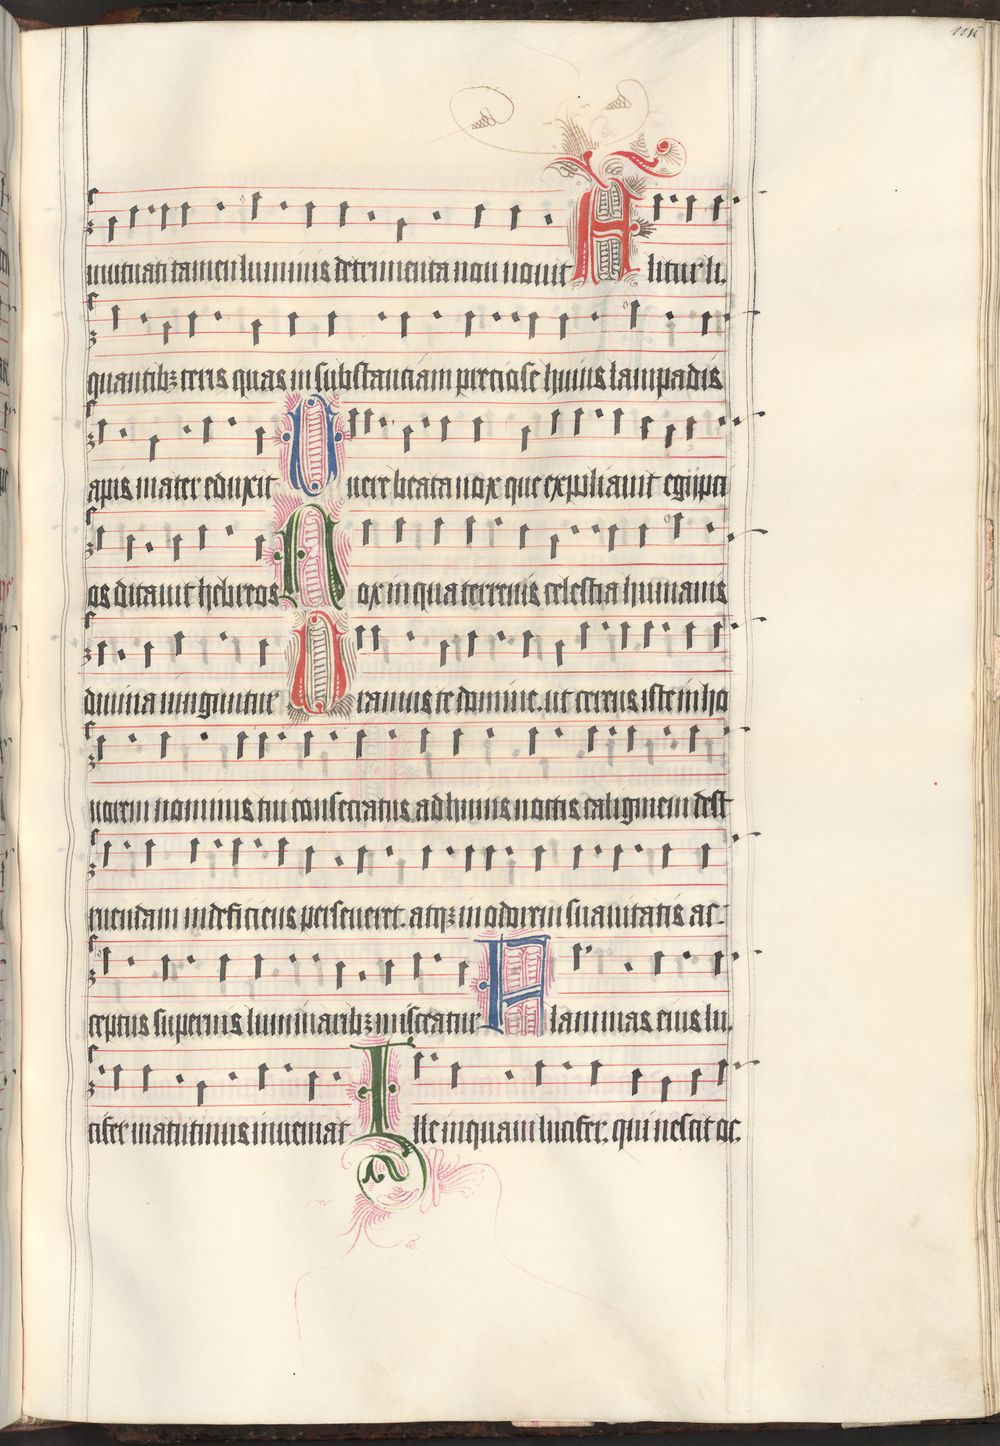 mutuati tamen luminis detrimenta non nouit Alitur li.
quantibꝫ ceris quas in substantiam preciose huius lampadis
apis mater eduxit O uere beata nox que expoliauit egipti
os ditauit hebreos Nox in qua terrenis celestia humanis
diuina iunguntur Oramus te domine. ut cereus iste in ho
norem nominis tui consecratus ad huius noctis caliginem dest
ruendam indeficiens perseueret. atqꝫ in odorem suauitatis ac-
ceptus supernis luminaribꝫ misceatur Flammas eius lu.
cifer matutinus inueniat Ille inquam lucifer. qui nescit oc.